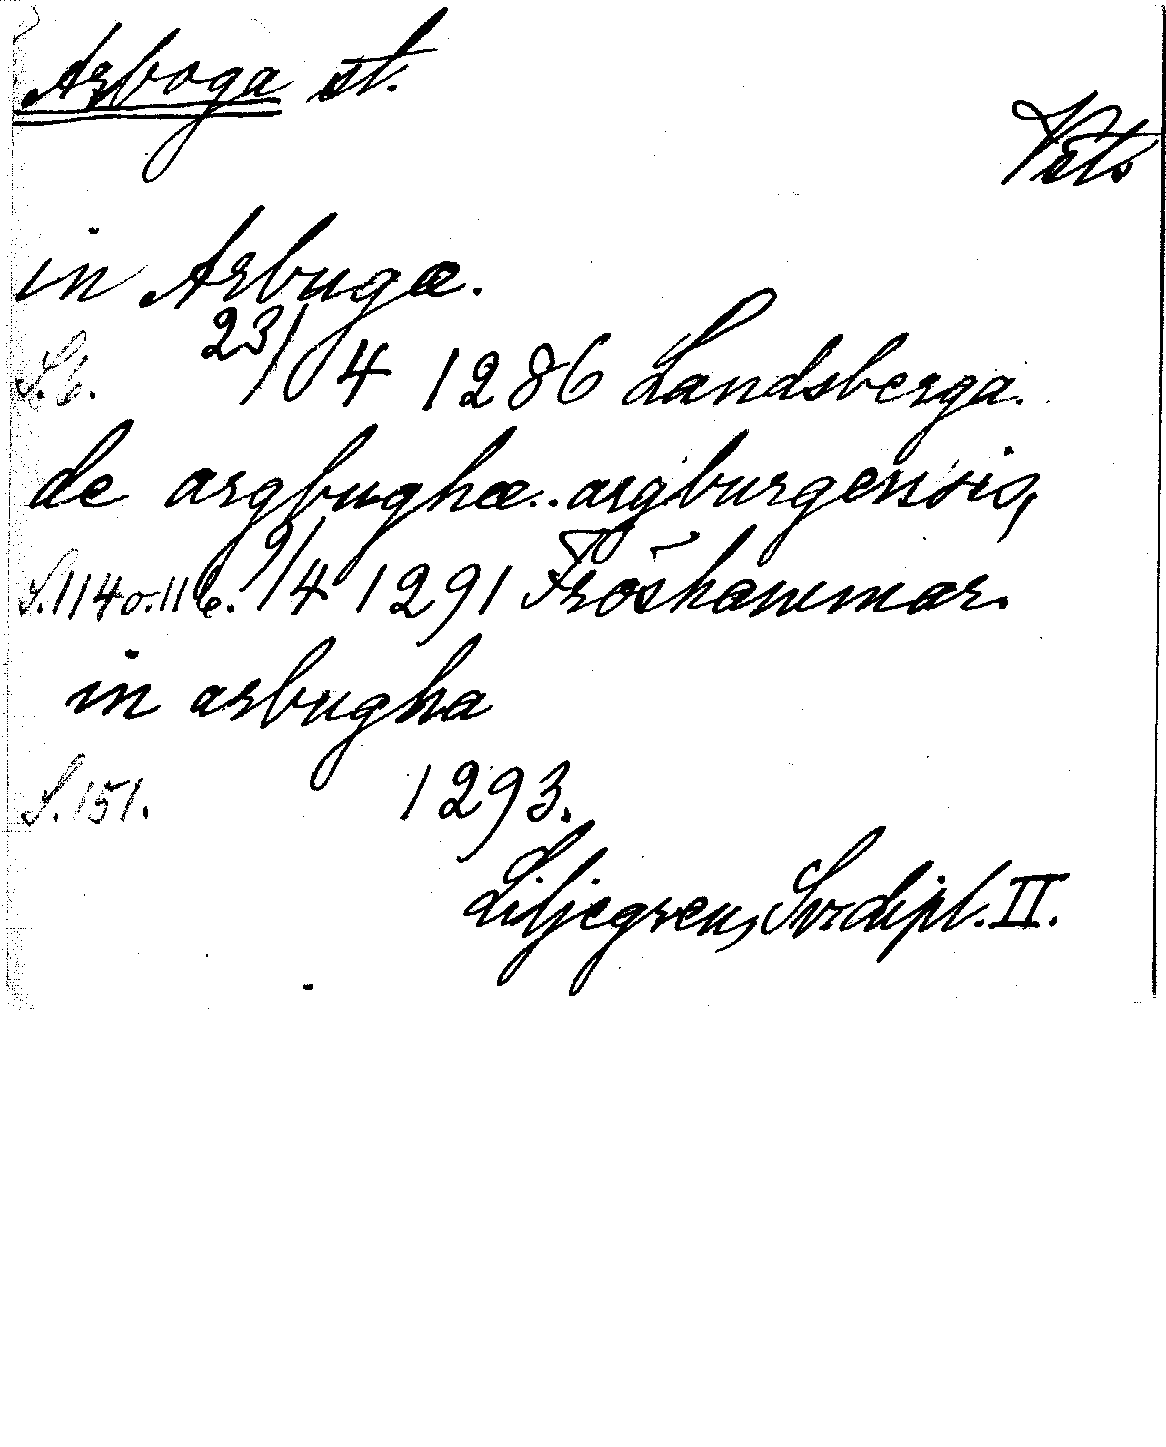 Arboga st.
Vstm
in Arbugæ.
S. 6. 23/4 1286 Landsberga.
de argbughæ.. argburgensis,
S. 114 o. 116. 9/4 1291 Fröshammar.
in arbugha
S. 151. 1293.
Liljegren, Sv. dipl. II.